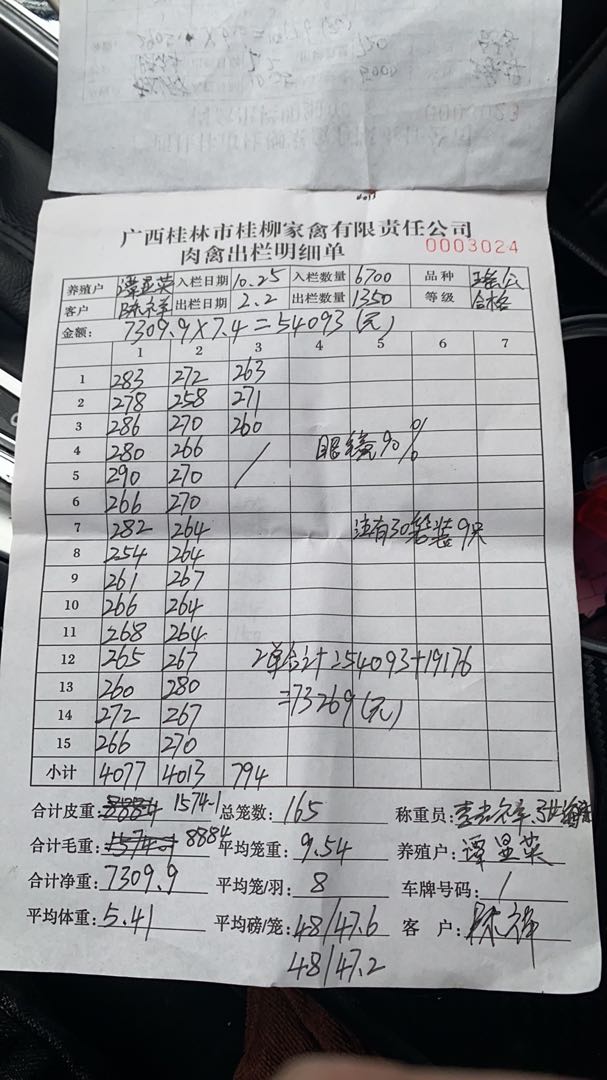 广西桂林市桂柳家禽有限责任公司
肉禽出栏明细单 0003024
养殖户 谭显荣 入栏日期 10.25 入栏数量 6700 品种
客户 陈祥 出栏日期 2.2 出栏数量 1350 等级 合格
金额: 7309.9×7.4=54093(元)
1 2 3 4 5 6 7
1 283 272 263
2 278 258 271
3 286 270 260
4 280 266 / 眼镜90%
5 290 270
6 266 270
7 282 264 注有30笼装9只
8 254 264
9 261 267
10 266 264
11 268 264
12 265 267 2单合计=54093+19176
13 260 280 =73269(元)
14 272 267
15 266 270
小计 4077 4013 794
合计皮重: 8884 1574.1 总笼数: 165 称重员:
合计毛重: 1574.1 8884 平均笼重: 9.54 养殖户: 谭显荣
合计净重: 7309.9 平均笼/羽: 8 车牌号码: /
平均体重: 5.41 平均磅/笼: 48/47.6 客户: 陈祥
48/47.2